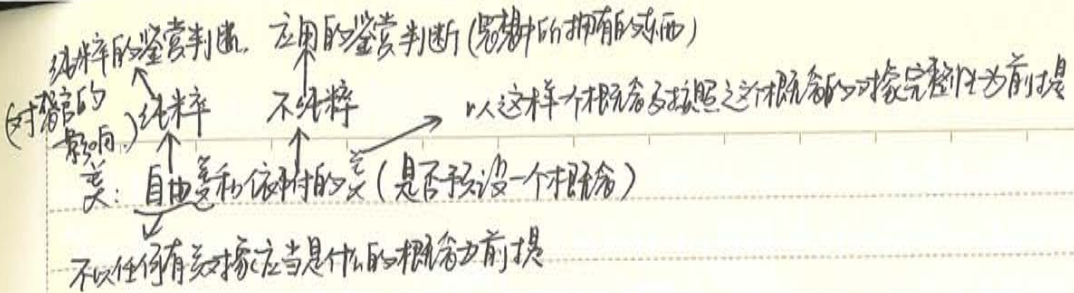 纯粹的鉴赏判断. 应用的鉴赏判断(思想中所拥有的东西)
(对感官的影响.) 纯粹 不纯粹 以这样一个概念及按照这个概念的对象完整性为前提
美: 自由美和依附的美(是否预设一个概念)
不以任何有关对象应当是什么的概念为前提